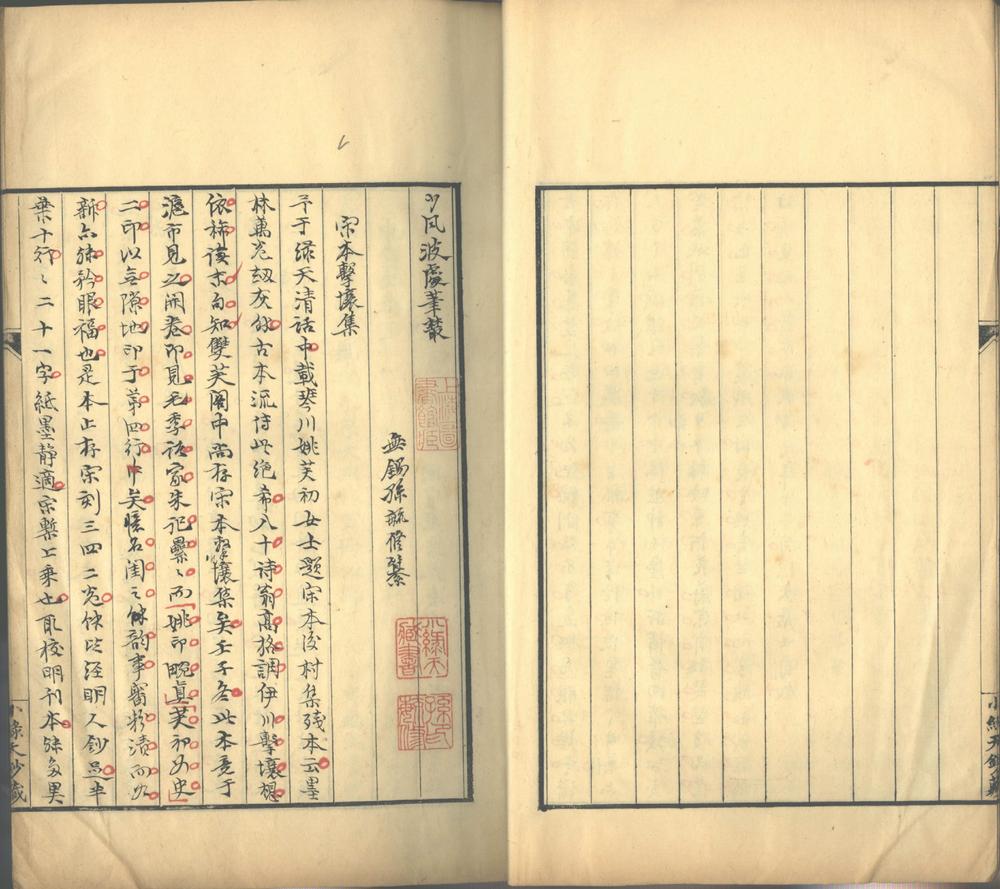 小風波處筆叢
無錫孫毓修纂
宋本擊壤集
予于綠天清話中載琴川姚芙初女士題宋本後村集殘本云墨
林萬卷劫灰餘古本流傳此絕希八十詩翁高格調伊川擊壤想
依稀讀末句知雙芙閣中尚存宋本擊壤集矣壬子冬此本竟于
滬市見之開卷即見毛季諸家朱記纍〻而姚印畹真芙初女史
二印以無隙地印于第四行中矣慢名閨之餘韵事
新六殊矜眼福也是本止存宋刻三四二卷餘明人鈔
葉十行〻二十一字紙墨靜適宗槧上乘也取校明刊本殊多異
上海圖書館藏
小綠天藏書
孫氏毓修
小綠天鈔藏
小綠天鈔藏